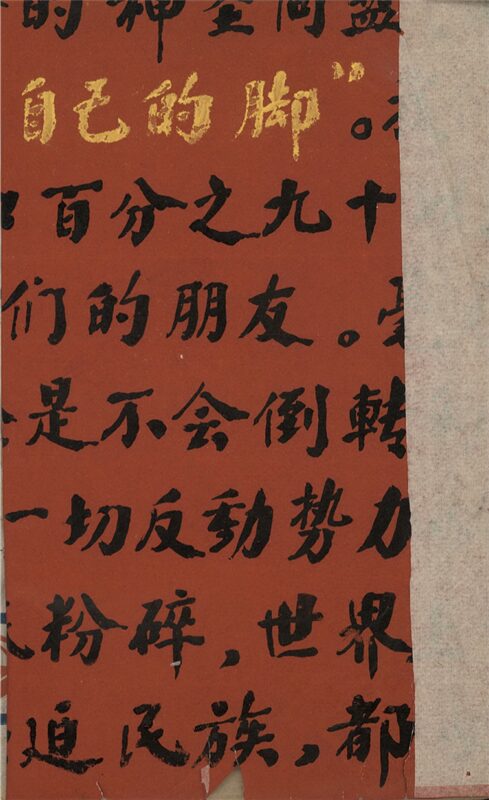 的神圣同盟
自己的脚”。
百分之九十
们的朋友。毫
是不会倒轉
一切反动势力
粉碎，世界
迫民族，都